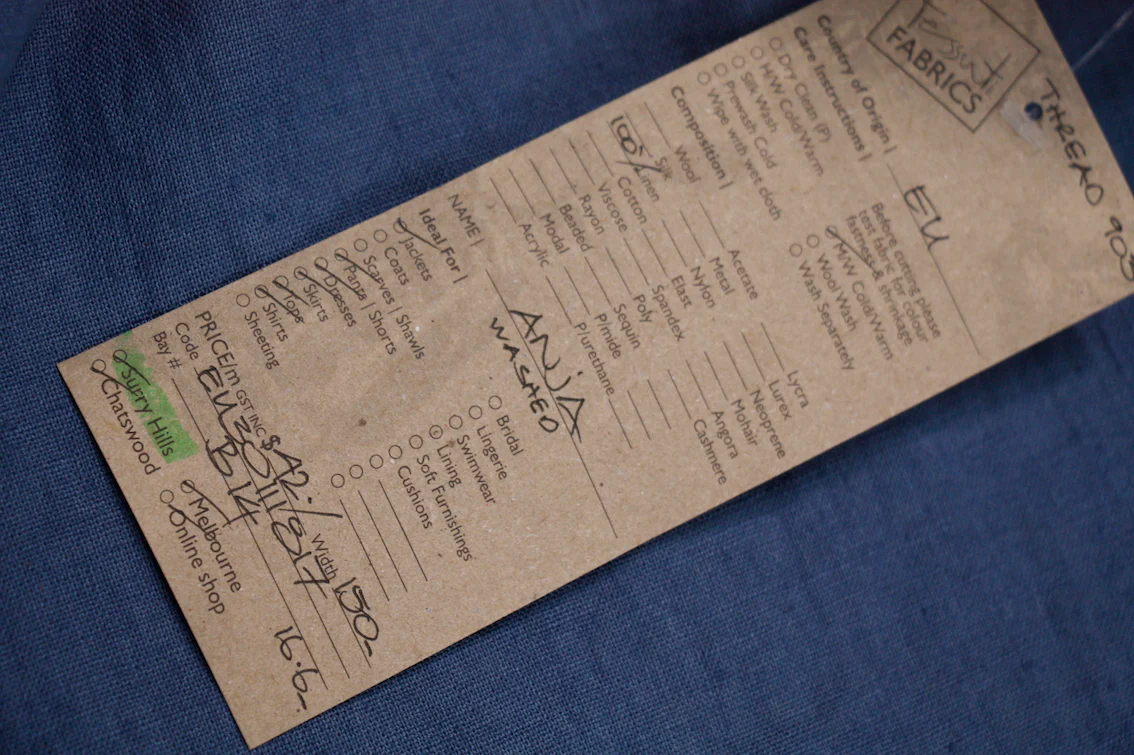 Tessuti
FABRICS
THREAD 903
Country of Origin | EU
Care Instructions |
Dry Clean (P)
H/W Cold/Warm
Silk Wash
Prewash Cold
Wipe with wet cloth
Before cutting please
test fabric for colour
fastness & shrinkage
M/W Cold/Warm
Wool Wash
Wash Separately
Composition |
Wool
Silk
100% Linen
Cotton
Viscose
Rayon
Beaded
Modal
Acrylic
Acetate
Metal
Nylon
Elast
Spandex
Poly
Sequin
P/mide
P/urethane
Lycra
Lurex
Neoprene
Mohair
Angora
Cashmere
NAME | ANJA
WASHED
Ideal For |
Jackets
Coats
Scarves | Shawls
Pants | Shorts
Dresses
Skirts
Tops
Shirts
Sheeting
Bridal
Lingerie
Swimwear
Lining
Soft Furnishings
Cushions
PRICE/m GST INC $42./ Width 150
Code
Bay # B14
16.6m
Surry Hills
Chatswood
Melbourne
Online shop